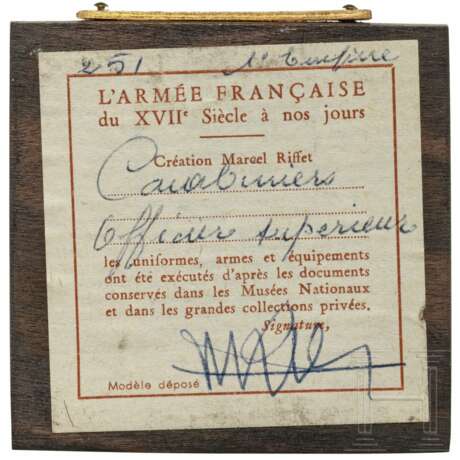 251 1er Empire
L'ARMÉE FRANÇAISE
du XVIIe Siècle à nos jours
Création Marcel Riffet
Carabiniers
Officier supérieur
les uniformes, armes et équipements
ont été exécutés d'après les documents
conservés dans les Musées Nationaux
et dans les grandes collections privées.
Signature,
Modèle déposé